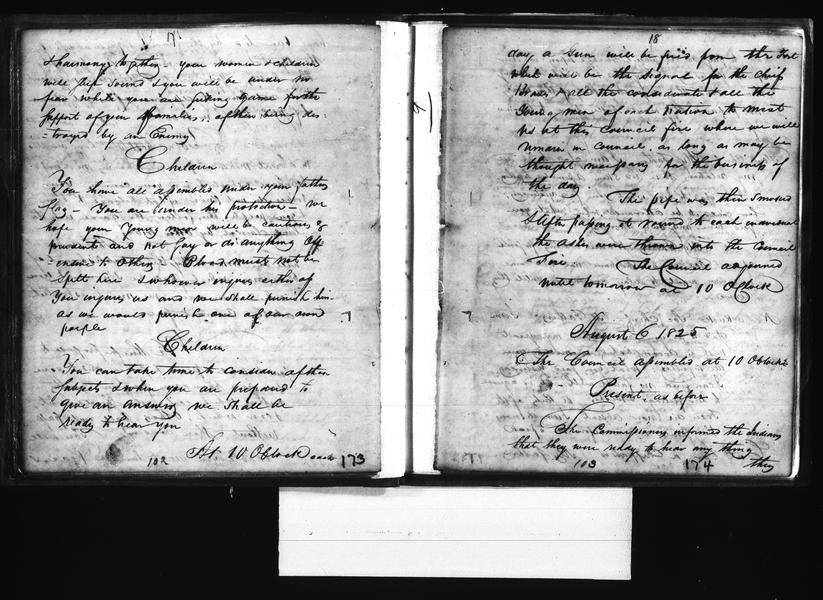 17
& harmony together your women & children
will sleep sound & you will be under no
fear while you are finding Game for the
support of your families, of them being des-
-troyed by an Enemy
Children
You have all assembled under your fathers
flag - You are under his protection - we
hope your Young men will be cautious &
prudent and not say or do anything off-
-ensive to others Blood must not be
spilt here & whoever injures either of
You injures us and we shall punish him
as we would punish one of our own
people
Children
You can take time to consider of these
subjects & when you are prepared to
give an answer we shall be
ready to hear you
At 10 OClock each
102
173
9
18
day a Gun will be fired from the Fort
which will be the signal for the Chiefs
& all the considerate & all the
Young men of each Nation to meet
us at this Council fire where we will
remain in Council as long as may be
thought necessary for the business of
the day
The pipe was then smoked
& After passing it round to each individual
the Ashes were thrown into the Council
Fire
The Council adjourned
until tomorrow at 10 OClock
August 6 1825
The Council assembled at 10 OClock
Present as before
The Commissioners informed the Indians
that they were ready to hear any thing
103
174
they